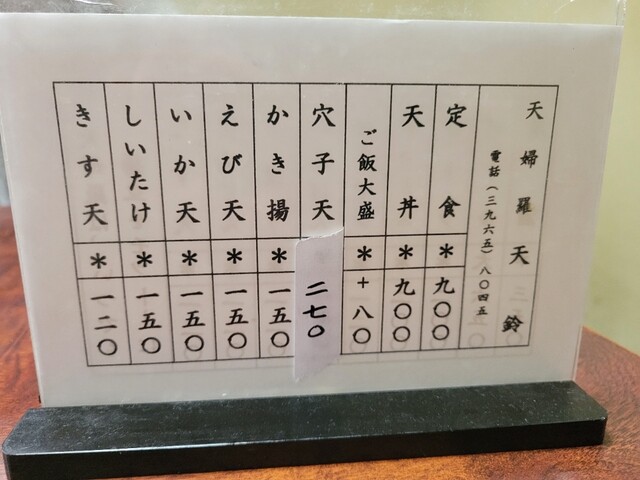 天婦羅 天鈴
電話(三九六五)八〇四五
定食 * 九〇〇
天丼 * 九〇〇
ご飯大盛 * +八〇
穴子天 二七〇
かき揚 * 一五〇
えび天 * 一五〇
いか天 * 一五〇
しいたけ * 一五〇
きす天 * 一二〇